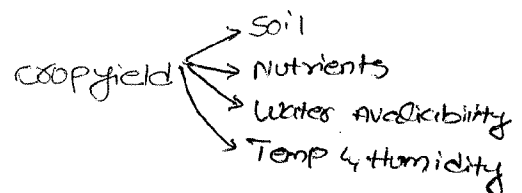 Soil
cropyield
Nutrients
Water Availability
Temp & Humidity